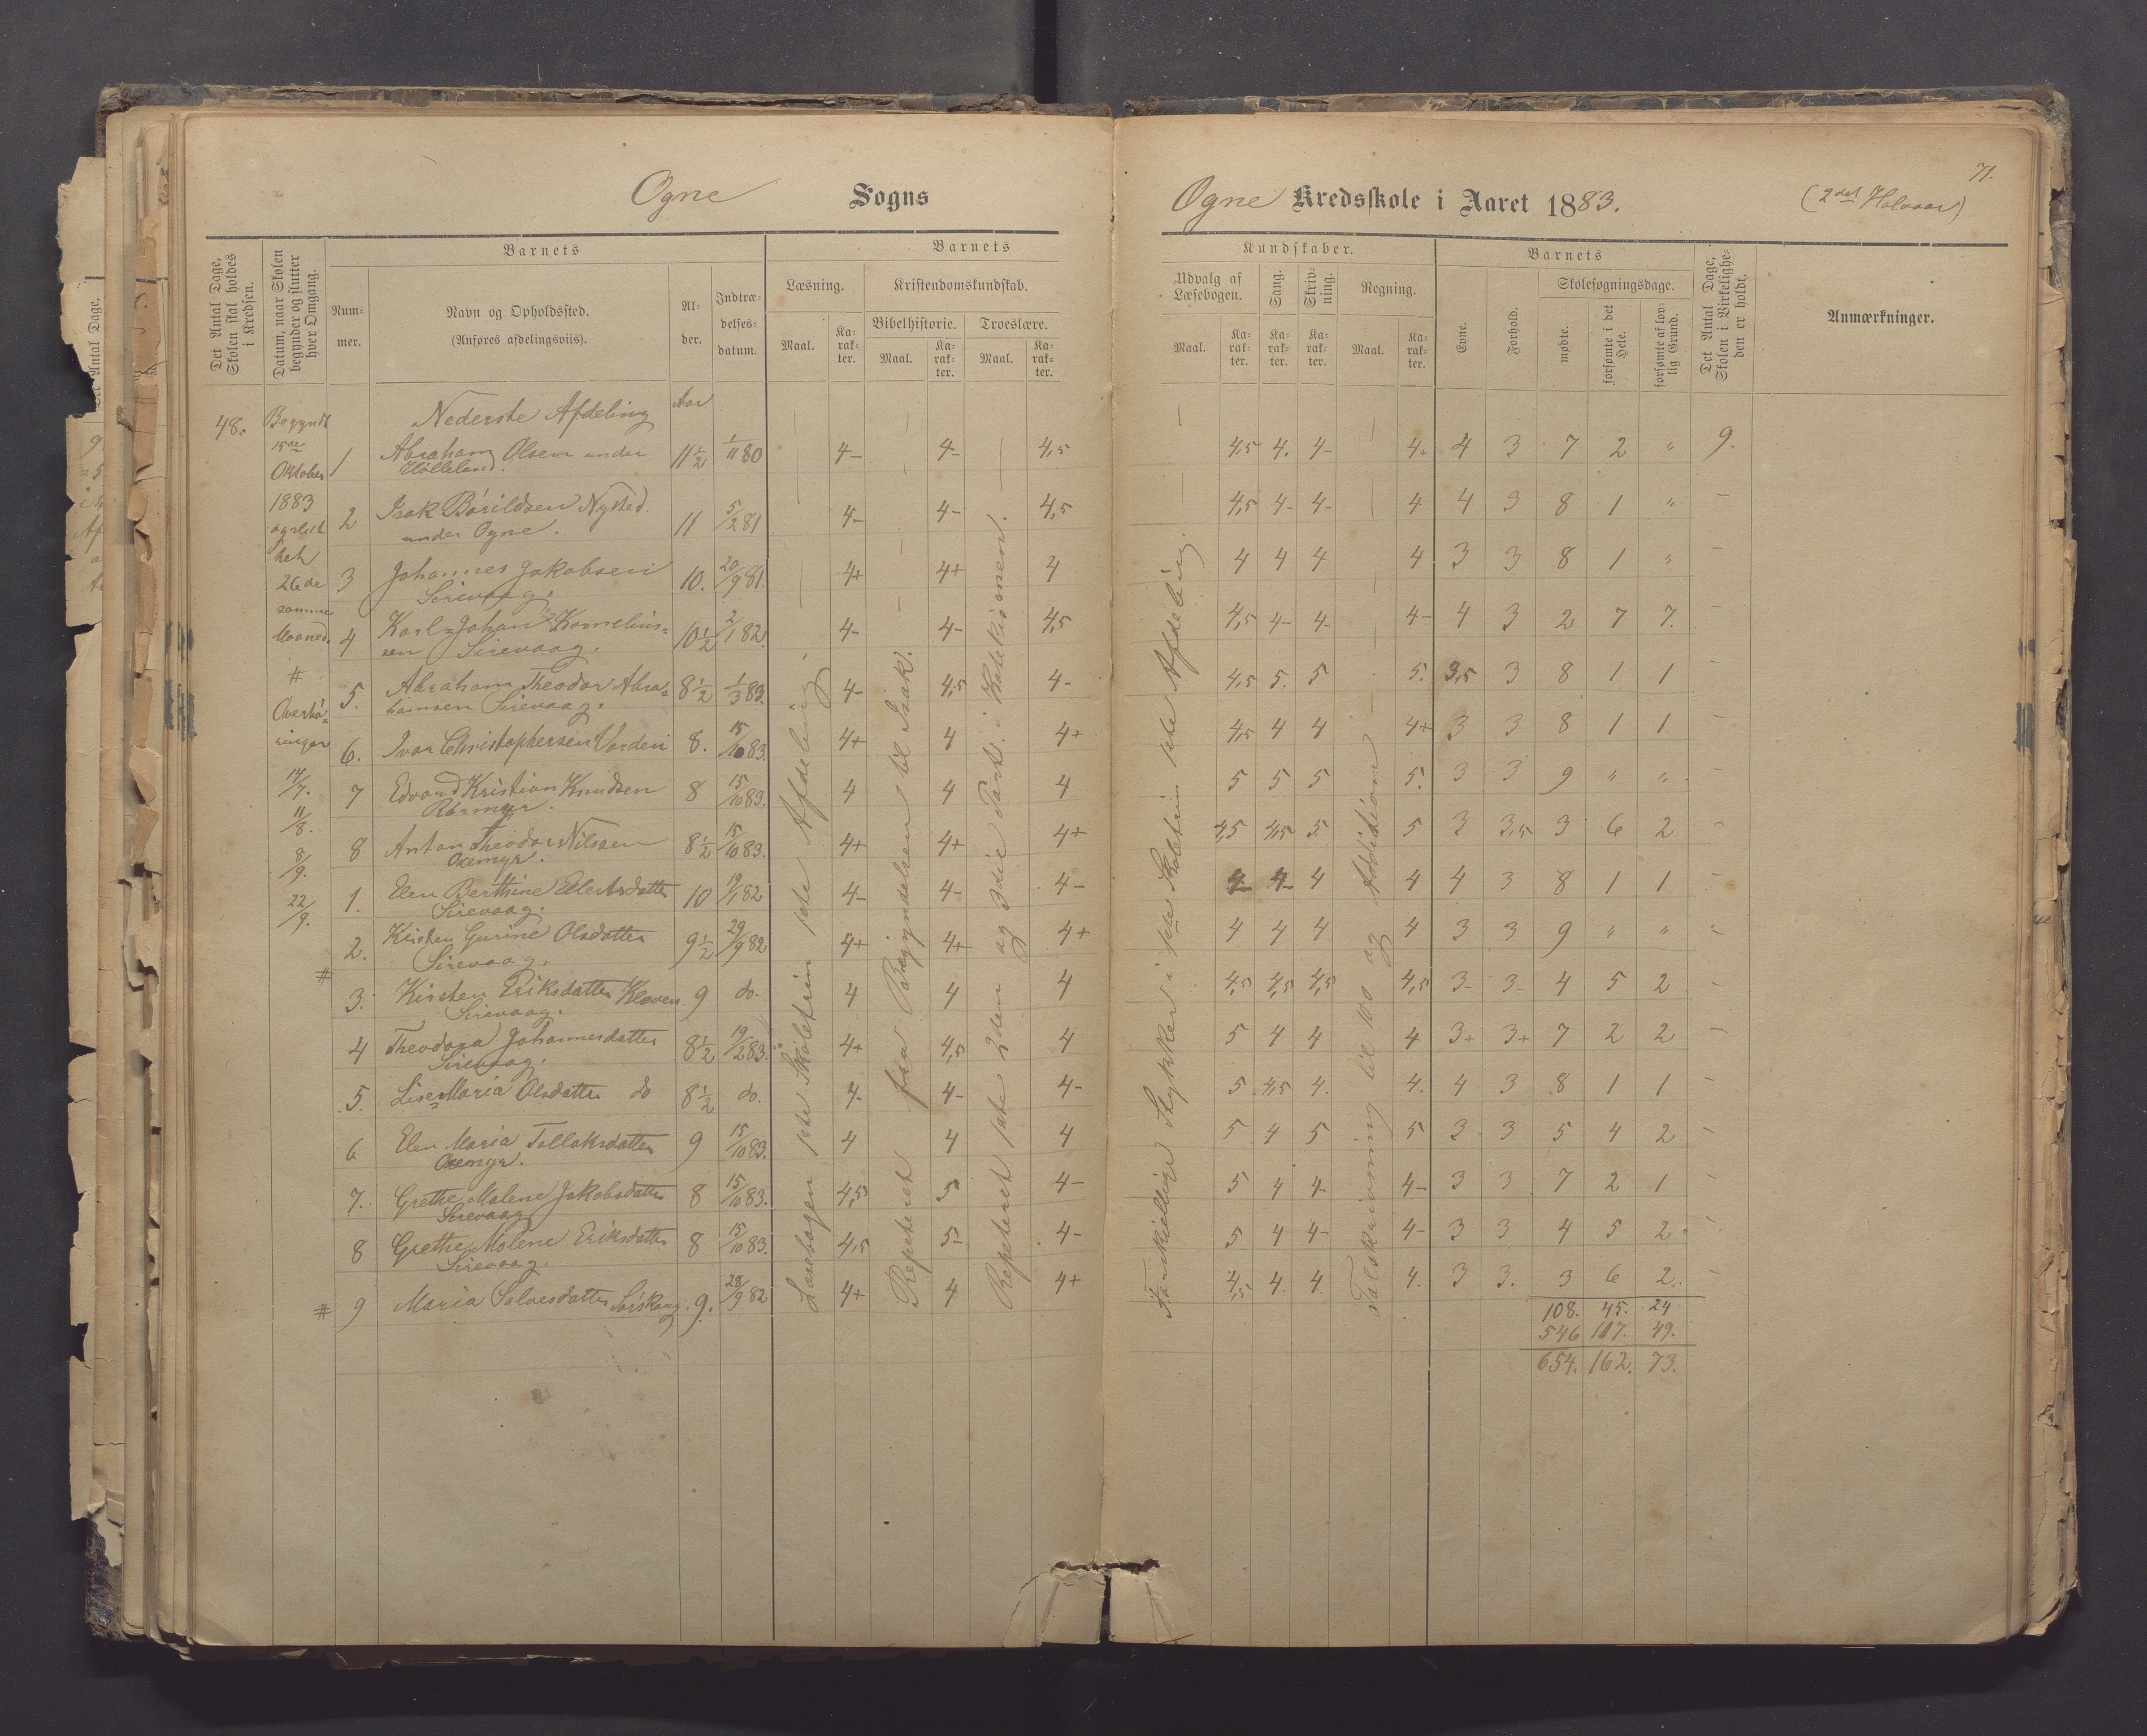 71.
Ogne Sogns
Ogne Kredsskole i Aaret 1883. (2det Halvaar)
Det Antal Dage, Skolen skal holdes i Kredsen.
Datum, naar Skolen begynder og slutter hver Omgang.
Barnets
Num-mer.
Navn og Opholdssted.
(Anføres afdelingsviis).
Al-der.
Indtræ-delses-datum.
Barnets
Læsning.
Maal.
Ka-rak-ter.
Kristendomskundskab.
Bibelhistorie.
Maal.
Ka-rak-ter.
Troeslære.
Maal.
Ka-rak-ter.
Kundskaber.
Udvalg af Læsebogen.
Maal.
Ka-rak-ter.
Sang.
Ka-rak-ter.
Skriv-ning.
Ka-rak-ter.
Regning.
Maal.
Ka-rak-ter.
Barnets
Evne.
Forhold.
Skolesøgningsdage.
mødte.
forsømte i det Hele.
forsømte af lov-lig Grund.
Det Antal Dage, Skolen i Virkelighe-den er holdt.
Anmærkninger.
48.
Begyndt
15de
Oktober
1883
og sluttet
26de
samme
Maaned.
#
Overhø-
ringer
14/7.
11/8.
8/9.
22/9.
Nederste Afdeling Aar
1 Abraham Olsen under 11½ 1/11 80 4- 4- 4,5 4,5 4. 4- 4+ 4 3 7 2 " 9.
Hølleland.
2 Isak Bårildsen Nysted. 11 5/2 81 4- 4- 4,5 4,5 4- 4- 4 4 3 8 1 " -
under Ogne.
3 Johannes Jakobsen 10. 20/9 81. 4+ 4+ 4 4 4 4 4 3 3 8 1 " -
Sirevaag.
4 Karl Johan Kornelius- 10½ 2/1 82. 4- 4- 4,5 4,5 4- 4- 4- 4 3 2 7 7. -
sen Sirevaag.
5. Abraham Theodor Abra- 8½ 1/3 83. 4- 4,5 4- 4,5 5. 5 5. 3,5 3 8 1 1 -
hamsen Sirevaag.
6. Ivar Christophersen Varden 8. 15/10 83. 4+ 4 4+ 4,5 4 4 4+ 3 3 8 1 1 -
7 Edvard Kristian Knudsen 8 15/10 83. 4 4 4 5 5 5 5. 3 3 9 " " -
8 Anton Theodor Nilssen 8½ 15/10 83. 4+ 4+ 4+ 4,5 4,5 5 5 3 3,5 3 6 2 -
Oxemyr.
1. Elen Berthine Eilertsdatter 10 19/1 82 4- 4- 4- 4- 4- 4 4 4 3 8 1 1 -
Sirevaag.
2. Kirsten Gurine Olsdatter 9½ 29/9 82 4+ 4+ 4+ 4 4 4 4 3 3 9 " " -
Sirevaag.
# 3. Kirsten Eriksdatter Kløven 9 do. 4 4 4 4,5 4,5 4,5 4,5 3- 3- 4 5 2 -
Sirevaag.
4 Theodora Johannesdatter 8½ 19/2 83. 4+ 4,5 4 5 4 4 4 3+ 3+ 7 2 2 -
Sirevaag.
5. Lise Maria Olsdatter do 8½ do. 4- 4- 4- 5 4,5 4. 4. 4 3 8 1 1 -
6 Elen Maria Tollaksdatter 9 15/10 83. 4 4 4 5 4 5 5 3 3 5 4 2 -
Oxemyr.
7. Grethe Malene Jakobsdatter 8 15/10 83. 4,5 5 4- 5 4 4- 4- 3 3 7 2 1 -
Sirevaag
8 Grethe Malene Eriksdatter 8 15/10 83. 4,5 5- 4- 5 4 4- 4- 3 3 4 5 2 -
Sirevaag.
# 9 Maria Salvesdatter 9. 28/9 82 4+ 4 4+ 4,5 4. 4. 4. 3 3. 3 6 2. -
108. 45. 24
546 117. 49.
654. 162. 73.
Læsebogen 1ste Skoletrin 1ste Afdeling.
Repeteret fra Begyndelsen til Isak.
Repeteret 1ste 2den og 3die Part. i Katekismen.
Forskjellige Stykker i 1ste Skoletrin 1ste Afdeling.
Talskrivning til 100 og Addition